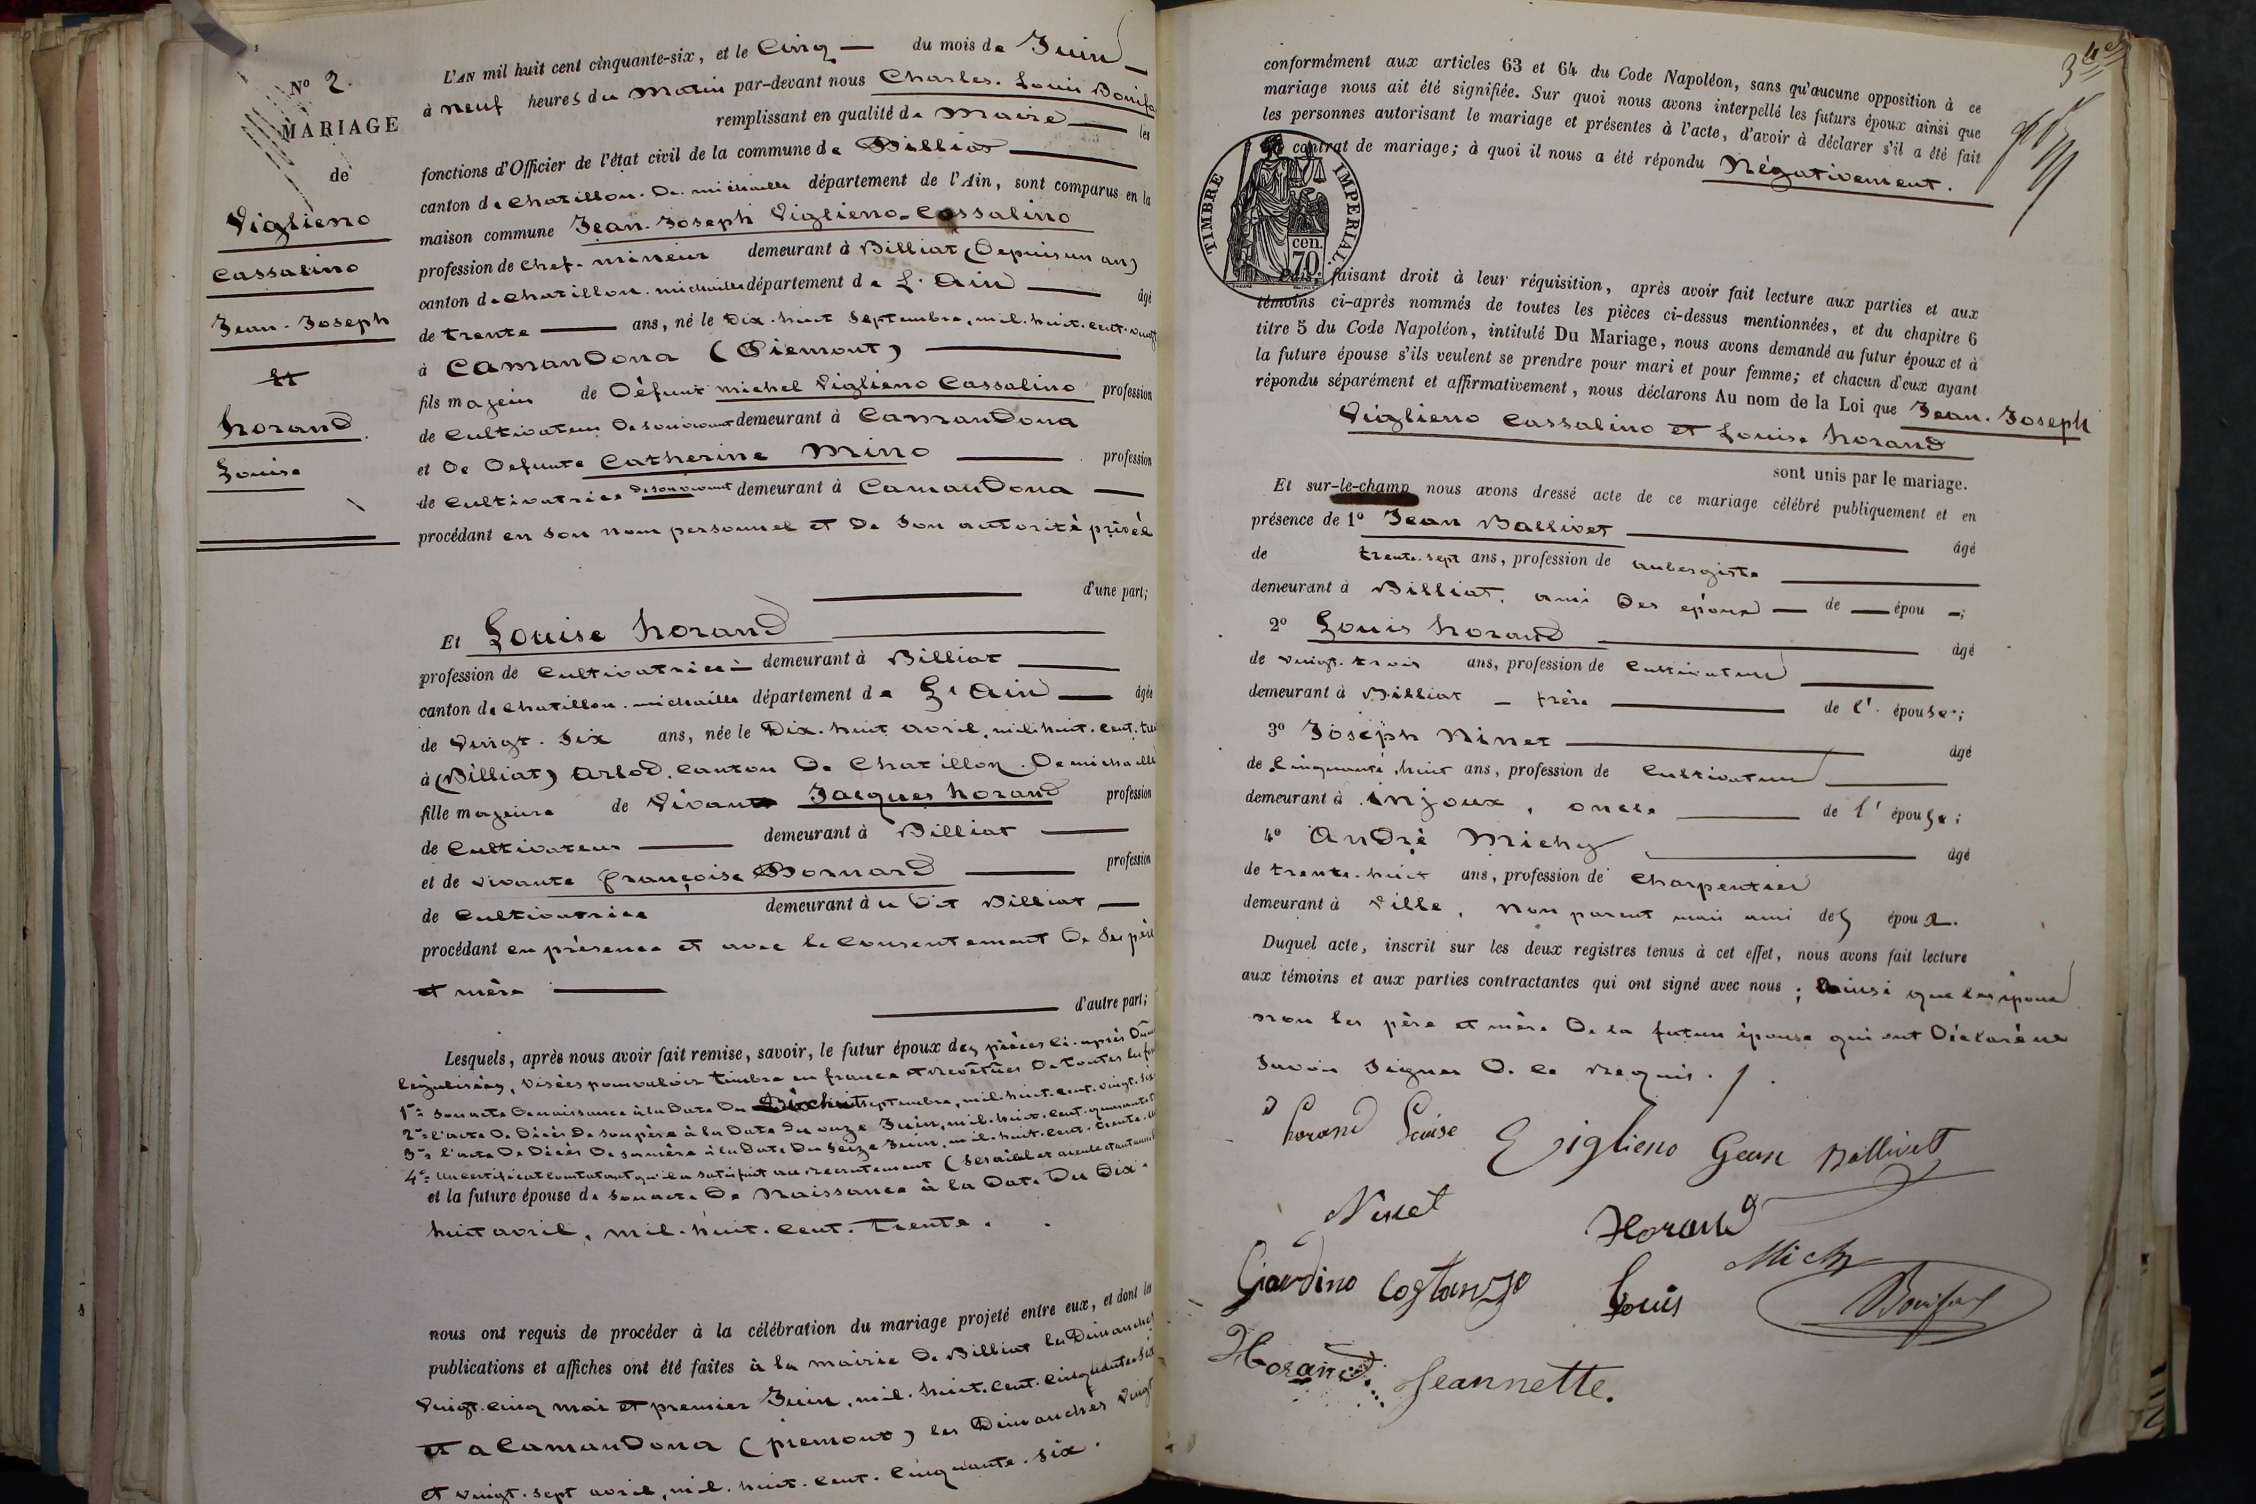 N° 2.
MARIAGE
de
Viglieno
Cassalino
Jean-Joseph
Et
Morand
Louise
L'AN mil huit cent cinquante-six, et le Cinq du mois de Juin
à neuf heures du Matin par-devant nous Charles-Louis Bonifa
remplissant en qualité de Maire les
fonctions d'Officier de l'état civil de la commune de Billiat
canton de Chatillon-De-michaille département de l'Ain, sont comparus en la
maison commune Jean-Joseph Viglieno-Cassalino
profession de chef-mineur demeurant à Billiat (Depuis un an)
canton de Chatillon-michaille département de L'Ain âgé
de trente ans, né le Dix-huit Septembre, mil-huit-cent-vingt
à Camandona (Piemont)
fils majeur de Défunt michel Viglieno Cassalino profession
de Cultivateur de son vivant demeurant à Camandona
et de Defunte Catherine Mino profession
de Cultivatrice de son vivant demeurant à Camandona
procédant en son nom personnel et de son autorité privée
d'une part;
Et Louise Morand
profession de Cultivatrice demeurant à Billiat
canton de Chatillon-michaille département de L'Ain âgée
de Vingt-Six ans, née le Dix-huit avril, mil-huit-cent-tre
à (Billiat) Arlod, Canton De Chatillon-De michaille
fille majeure de Vivant Jacques Morand profession
de Cultivateur demeurant à Billiat
et de vivante françoise Bornard profession
de Cultivatrice demeurant à u Dit Billiat
procédant en présence et avec le Consentement De Ses père
et mère
d'autre part;
Lesquels, après nous avoir fait remise, savoir, le futur époux des pièces ci-après Dûm
légalisées, visées pour valoir timbre en france et revêtues De toutes les for
1°= Son acte De naissance à la Date Du Dix-huit septembre, mil-huit-cent-vingt-six
2°= l'acte De Décès De son père à la Date du onze Juin, mil-huit-cent-quarante
3°= l'acte De Décès De sa mère à la Date Du Seize Juin, mil-huit-cent-trente
4°= Un certificat Constatant qu'il a satisfait au recrutement
et la future épouse de Son acte De Naissance à la Date Du Dix-
huit avril, mil-huit-cent-trente.
nous ont requis de procéder à la célébration du mariage projeté entre eux, et dont les
publications et affiches ont été faites à la mairie De Billiat les Dimanches
Vingt-cinq mai et premier Juin, mil-huit-cent-cinquante-six
et a Camandona (piemont) les Dimanches vingt
et vingt-sept avril, mil-huit-cent-cinquante-six.
conformément aux articles 63 et 64 du Code Napoléon, sans qu'aucune opposition à ce
mariage nous ait été signifiée. Sur quoi nous avons interpellé les futurs époux ainsi que
les personnes autorisant le mariage et présentes à l'acte, d'avoir à déclarer s'il a été fait
contrat de mariage; à quoi il nous a été répondu Négativement.
TIMBRE IMPERIAL
70 cen.
Puis, faisant droit à leur réquisition, après avoir fait lecture aux parties et aux
témoins ci-après nommés de toutes les pièces ci-dessus mentionnées, et du chapitre 6
titre 5 du Code Napoléon, intitulé Du Mariage, nous avons demandé au futur époux et à
la future épouse s'ils veulent se prendre pour mari et pour femme; et chacun d'eux ayant
répondu séparément et affirmativement, nous déclarons Au nom de la Loi que Jean-Joseph
Viglieno Cassalino et Louise Morand
sont unis par le mariage.
Et sur-le-champ nous avons dressé acte de ce mariage célébré publiquement et en
présence de 1° Jean Ballivet âgé
de trente-sept ans, profession de aubergiste
demeurant à Billiat, ami Des époux de épou ;
2° Louis Morand âgé
de vingt-trois ans, profession de Cultivateur
demeurant à Billiat frère de l' épouse;
3° Joseph Ninet âgé
de Cinquante-huit ans, profession de Cultivateur
demeurant à injoux, oncle de l' épouse;
4° André Michy âgé
de trente-huit ans, profession de Charpentier
demeurant à Ville, Non parent mais ami des époux.
Duquel acte, inscrit sur les deux registres tenus à cet effet, nous avons fait lecture
aux témoins et aux parties contractantes qui ont signé avec nous; ainsi que les époux
non les père et mère De la future épouse qui ont Déclaré ne
Savoir Signer De ce Requis.
Morand Louise Viglieno Gean Ballivet
Ninet Morand
Michy
Giardino Costanzo Louis Bonifax
Morand Jeannette.